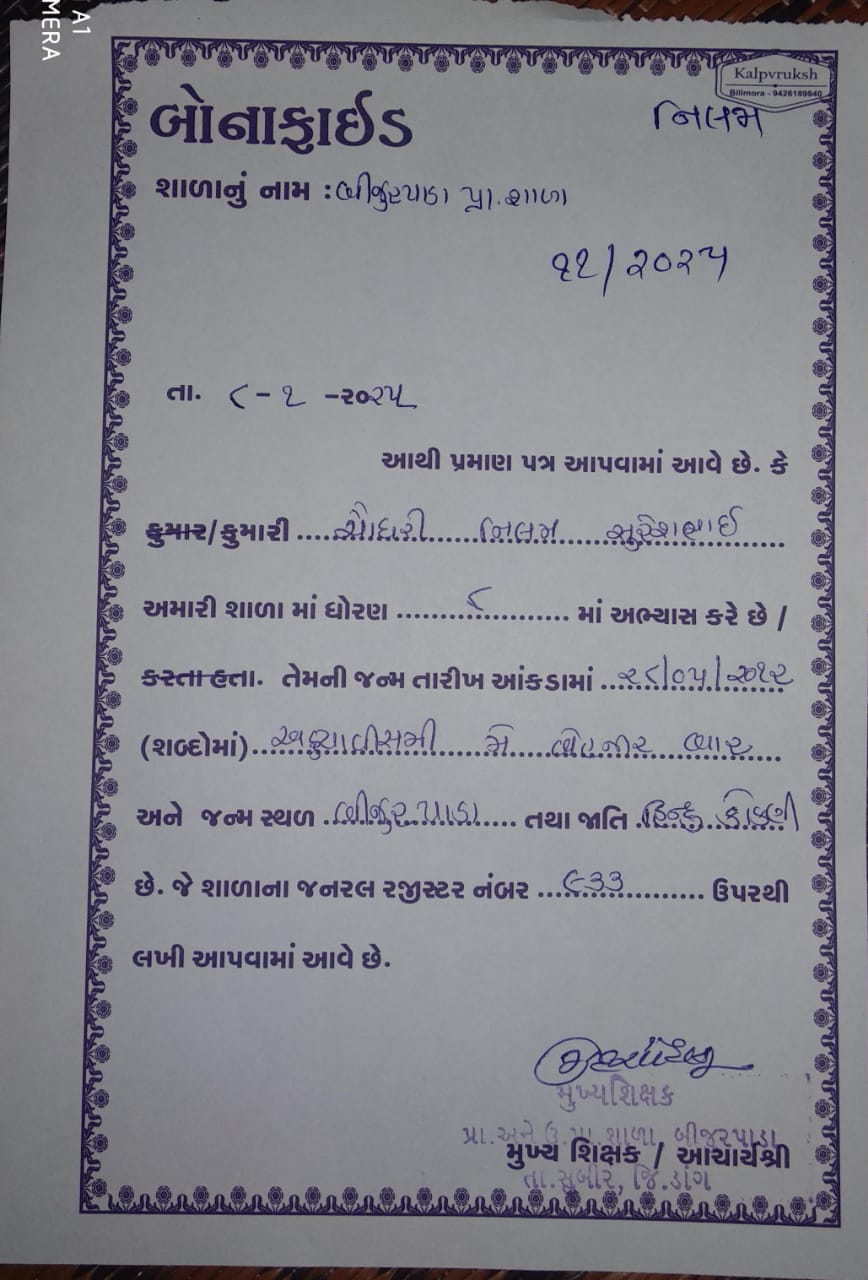 A1
MERA
Kalpvruksh
Bilimora - 9426189940
બોનાફાઇડ
નિલમ
શાળાનું નામ : બીજુરપાડા પ્રા. શાળા
૧૧/૨૦૨૫
તા. ૮-૧-૨૦૨૫
આથી પ્રમાણ પત્ર આપવામાં આવે છે. કે
કુમાર/કુમારી ....ચૌધરી......નિલમ......સુરેશભાઈ
અમારી શાળા માં ધોરણ .........૮......... માં અભ્યાસ કરે છે /
કરતા હતા. તેમની જન્મ તારીખ આંકડામાં ..૨૮/૦૫/૨૦૧૨
(શબ્દોમાં)..અઠ્ઠયાવીસમી.....મે.....બેહજાર બાર...
અને જન્મ સ્થળ .બીજુરપાડા.... તથા જાતિ .હિન્દુ કોકણી
છે. જે શાળાના જનરલ રજીસ્ટર નંબર ...૯૩૩.......... ઉપરથી
લખી આપવામાં આવે છે.
મુખ્યશિક્ષક
પ્રા.અને ઉ.પ્રા.શાળા, બીજુરપાડા
મુખ્ય શિક્ષક / આચાર્યશ્રી
તા.સુબીર, જિ.ડાંગ